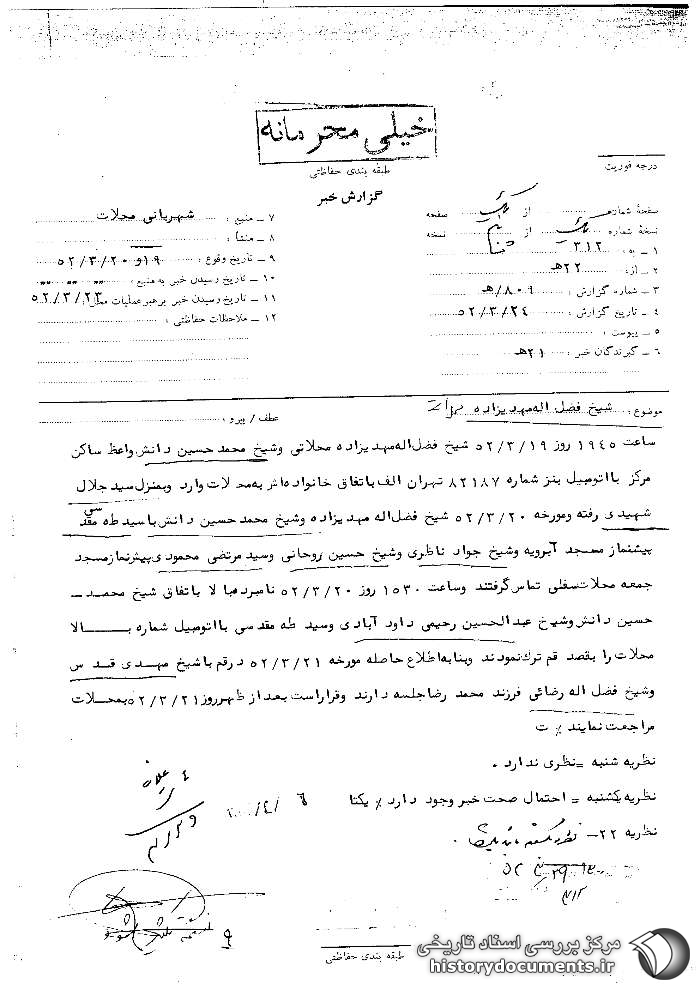 خیلی محرمانه
طبقه بندی حفاظتی
درجه فوریت
گزارش خبر
صفحهٔ شماره یک از یک صفحه
نسخهٔ شماره یک از نسخه
۱ ـ به : ۳۱۲
۲ ـ از : ۲۲هـ
۳ ـ شماره گزارش : ۸۰۹/هـ
۴ ـ تاریخ گزارش : ۵۲/۳/۲۴
۵ ـ پیوست :
۶ ـ گیرندگان خبر : ۲۱هـ
۷ ـ منبع : شهربانی محلات
۸ ـ منشأ :
۹ ـ تاریخ وقوع : ۱۹و۵۲/۳/۲۰
۱۰ ـ تاریخ رسیدن خبر به منبع :
۱۱ ـ تاریخ رسیدن خبر برهبر عملیات محل : ۵۲/۳/۲۳
۱۲ ـ ملاحظات حفاظتی :
موضوع : شیخ فضل اله مهدیزاده
عطف / پیرو :
ساعت ۱۹۴۵ روز ۵۲/۳/۱۹ شیخ فضل‌اله مهدیزاده محلاتی وشیخ محمدحسین دانش واعظ ساکن
مرکز بااتومبیل بنز شماره ۸۲۱۸۷ تهران الف باتفاق خانواده‌اش به محلات وارد وبمنزل سید جلال
شهیدی رفته ومورخه ۵۲/۳/۲۰ شیخ فضل‌اله مهدیزاده وشیخ محمدحسین دانش باسید طه مقدسی
پیشنماز مسجد آبرویه وشیخ جواد ناظری وشیخ حسین روحانی وسید مرتضی محمودی پیشنماز مسجد
جمعه محلات سفلی تماس گرفتند وساعت ۱۵۳۰ روز ۵۲/۳/۲۰ نامبرده‌بالا باتفاق شیخ محمد ـ
حسین دانش وشیخ عبدالحسین رحیمی داودآبادی وسید طه مقدسی بااتومبیل شماره بالا
محلات را بقصد قم ترک نمودند وبنابه اطلاع حاصله مورخه ۵۲/۳/۲۱ درقم باشیخ مهدی قدس
وشیخ فضل اله رضائی فرزند محمد رضا جلسه دارند وقراراست بعد از ظهر روز ۵۲/۳/۲۱ بمحلات
مراجعت نمایند٪ ت
نظریه شنبه = نظری ندارد .
نظریه یکشنبه = احتمال صحت خبر وجود دارد ٪ یکتا
نظریه ۲۲ـ
طبقه بندی حفاظتی
مرکز بررسی اسناد تاریخی
historydocuments.ir